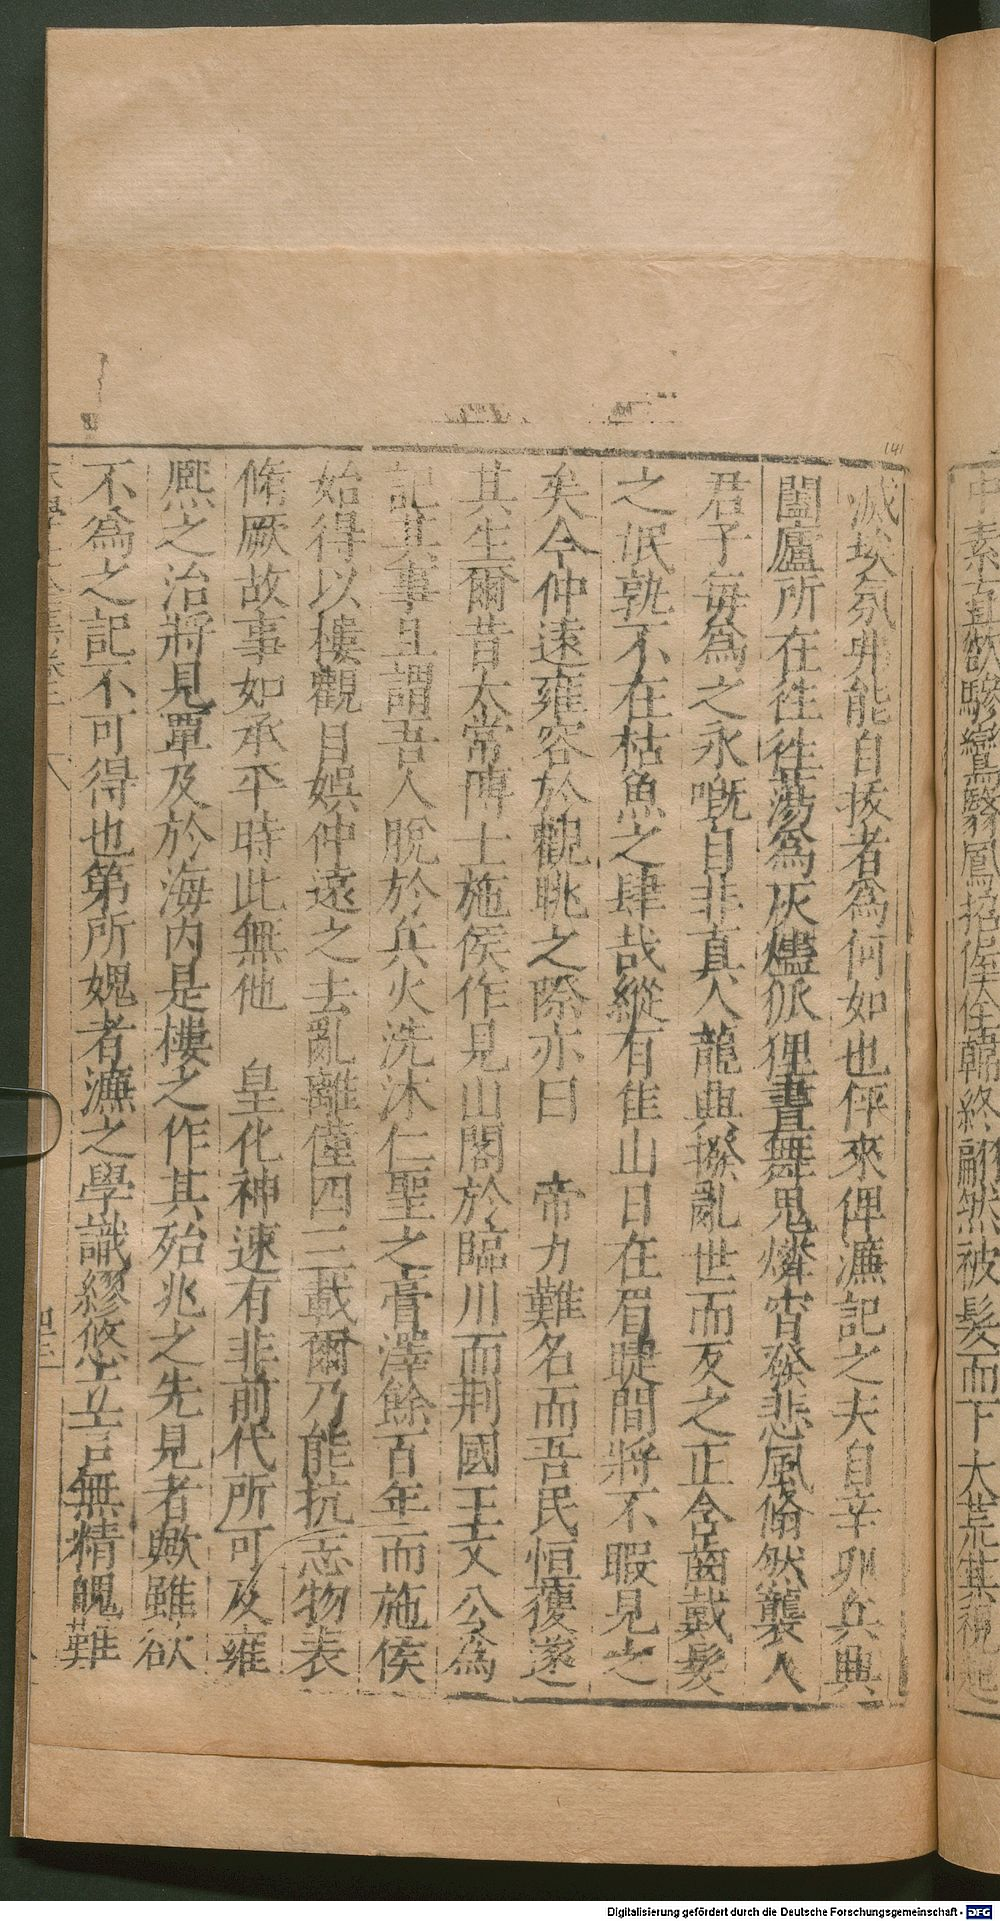 中素直欲驂鸞翳鳳招偓佺韓終翩然被髮而下大荒其視起
滅埃氛弗能自拔者為何如也伻來俾濂記之夫自辛卯兵興
闔廬所在徃徃蕩為灰燼狐狸晝舞鬼燐宵發悲風翛然襲人
君子每為之永嘅自非真人龍興撥亂世而反之正含齒戴髮
之氓孰不在枯魚之肆哉縱有佳山日在眉睫間將不暇見之
矣今仲遠雍容於觀眺之際亦曰　帝力難名而吾民恒獲遂
其生爾昔太常博士施侯作見山閣於臨川而荆國王文公為
記其事且謂吾人脫於兵火洗沐仁聖之膏澤餘百年而施侯
始得以樓觀自娛仲遠之去亂離僅四三載爾乃能抗志物表
脩厥故事如承平時此無他　皇化神速有非前代所可及雍
熈之治將見覃及於海内是樓之作其殆兆之先見者歟雖欲
不為之記不可得也第所媿者濂之學識繆悠立言無精魄難
141
Digitalisierung gefördert durch die Deutsche Forschungsgemeinschaft - DFG